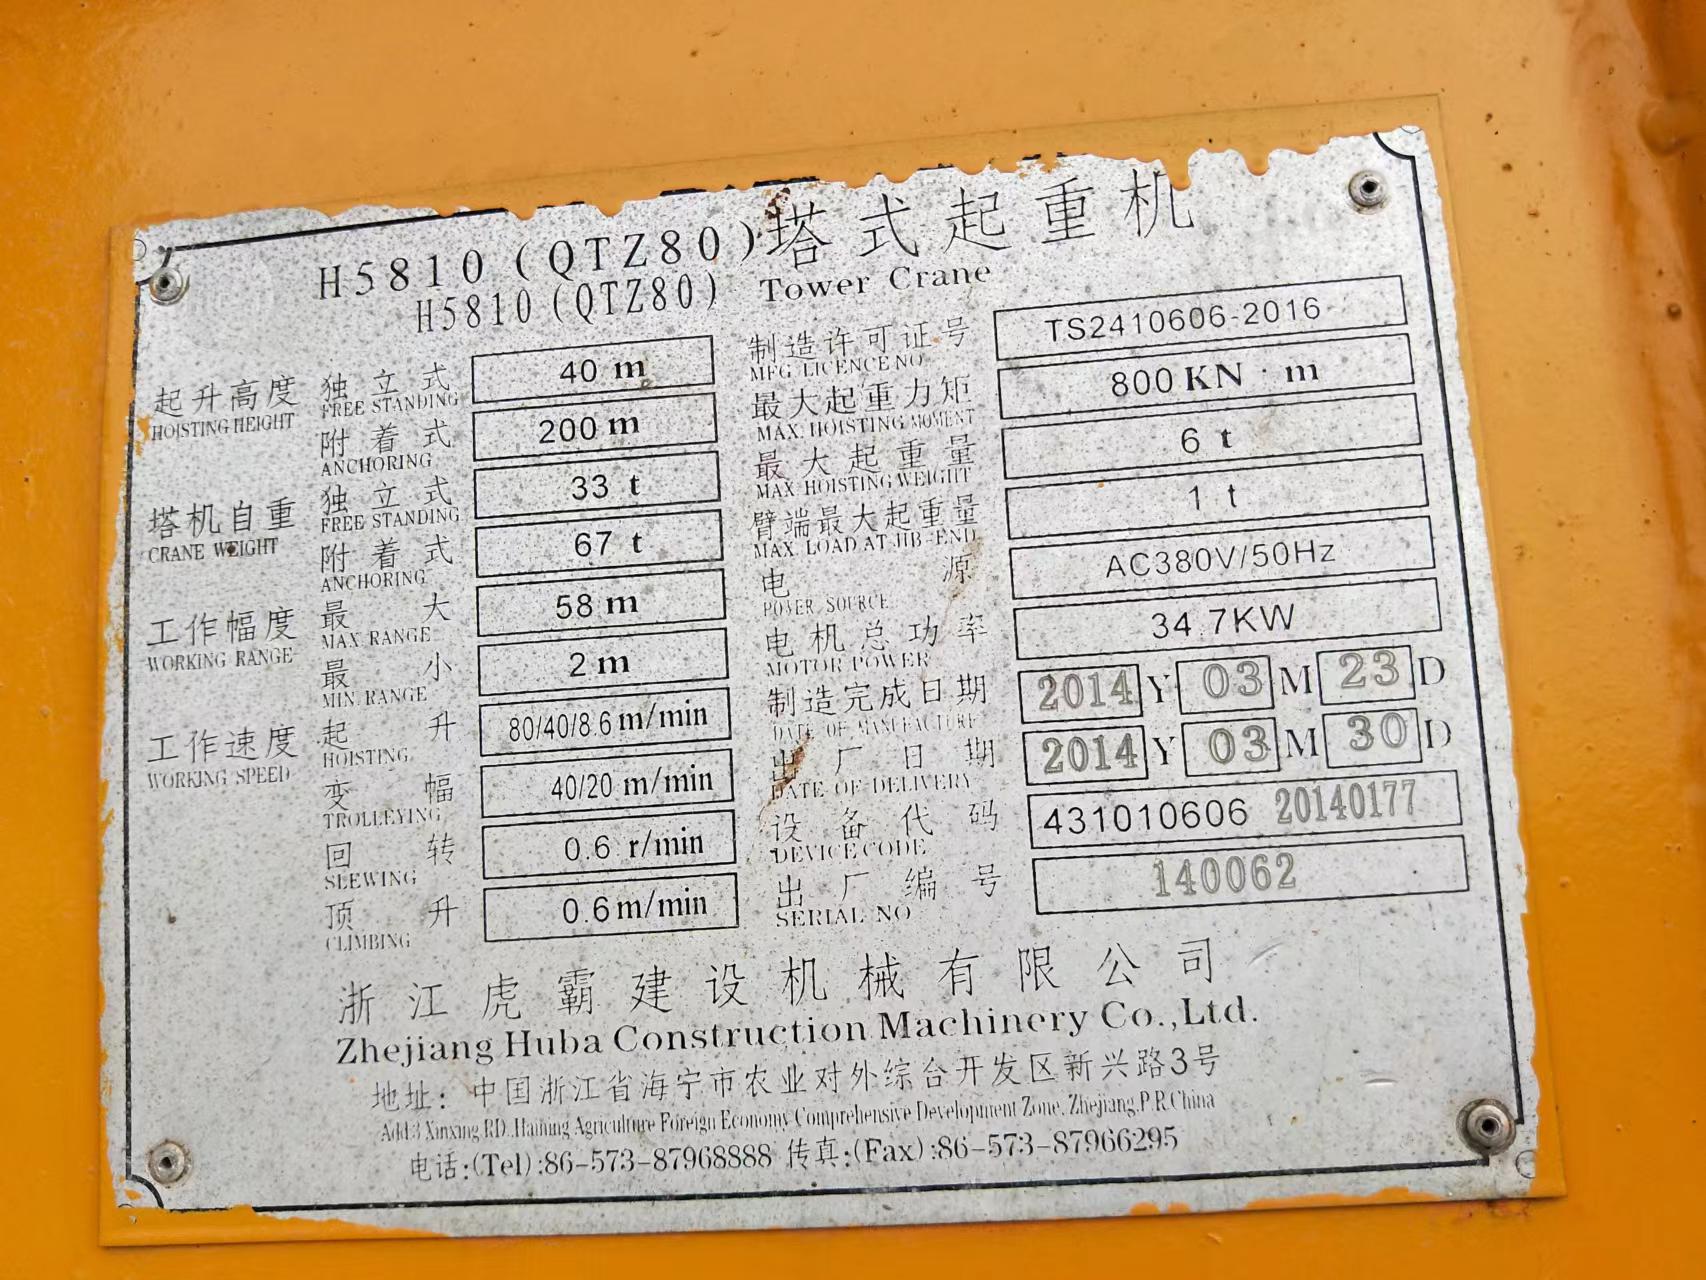 H5810(QTZ80)塔式起重机
H5810(QTZ80) Tower Crane
起升高度 独立式 40 m
HOISTING HEIGHT FREE STANDING
附着式 200 m
ANCHORING
塔机自重 独立式 33 t
CRANE WEIGHT FREE STANDING
附着式 67 t
ANCHORING
工作幅度 最大 58 m
WORKING RANGE MAX. RANGE
最小 2 m
MIN. RANGE
工作速度 起升 80/40/8.6 m/min
WORKING SPEED HOISTING
变幅 40/20 m/min
TROLLEYING
回转 0.6 r/min
SLEWING
顶升 0.6 m/min
CLIMBING
制造许可证号 TS2410606-2016
MFG. LICENCE NO.
最大起重力矩 800 KN·m
MAX. HOISTING MOMENT
最大起重量 6 t
MAX HOISTING WEIGHT
臂端最大起重量 1 t
MAX. LOAD AT JIB-END
电源 AC380V/50Hz
POWER SOURCE
电机总功率 34.7KW
MOTOR POWER
制造完成日期 2014 Y 03 M 23 D
DATE OF MANUFACTURE
出厂日期 2014 Y 03 M 30 D
DATE OF DELIVERY
设备代码 431010606 20140177
DEVICE CODE
出厂编号 140062
SERIAL NO
浙江虎霸建设机械有限公司
Zhejiang Huba Construction Machinery Co.,Ltd.
地址：中国浙江省海宁市农业对外综合开发区新兴路3号
Add:3 Xinxing RD.,Haining Agriculture Foreign Economy Comprehensive Development Zone, Zhejiang,P.R.China
电话:(Tel):86-573-87968888 传真:(Fax):86-573-87966295